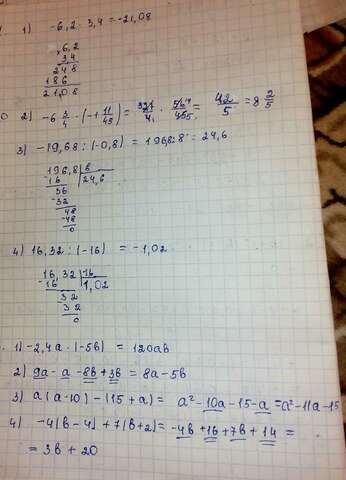 1) -6,2 · 3,4 = -21,08
× 6,2
3,4
248
186
21,08
2) -6 3/4 · (-1 11/45) =
= 42/5 = 8 2/5
3) -19,68 : (-0,8) = 196,8 : 8 = 24,6
196,8 | 8
-16 | 24,6
36
-32
48
-48
0
4) 16,32 : (-16) = -1,02
16,32 | 16
-16 | 1,02
32
-32
0
1) -2,4a · (-5b) = 120ab
2) 9a - a - 8b + 3b = 8a - 5b
3) a(a-10) - (15+a) = a² - 10a - 15 - a = a² - 11a - 15
4) -4(b-4) + 7(b+2) = -4b + 16 + 7b + 14 =
= 3b + 20